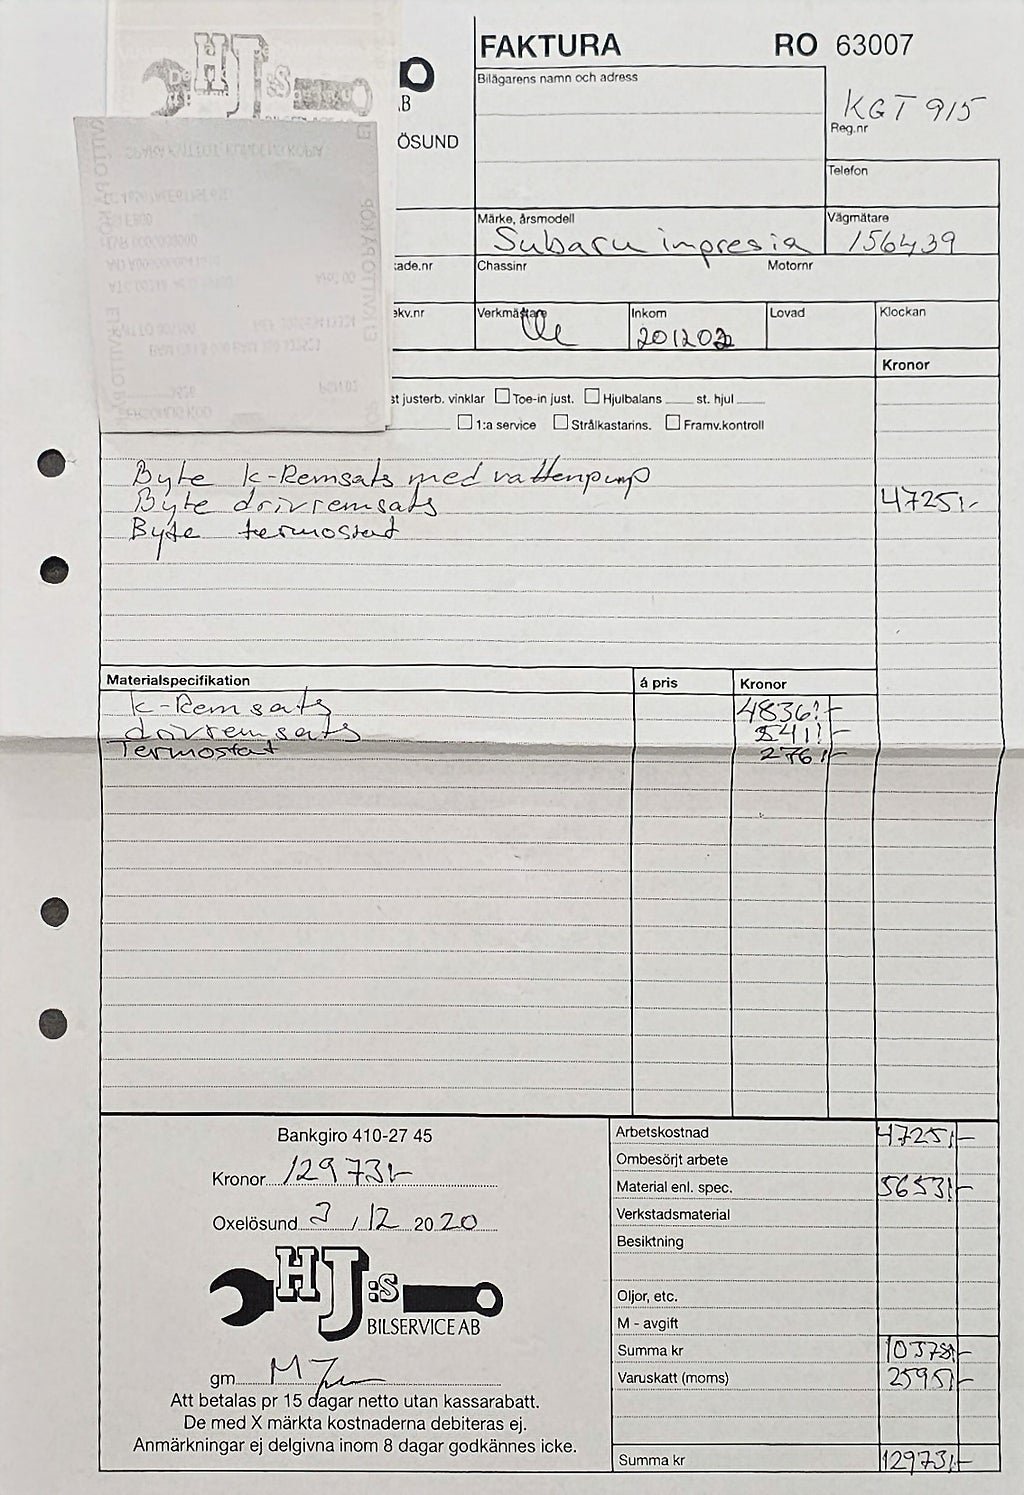 HJ:s
FAKTURA RO 63007
Bilägarens namn och adress
KGT 915
Reg.nr
AB
ÖSUND
SPARA KVITTOT, KUNDENS KOPIA
Telefon
Märke, årsmodell Vägmätare
Subaru impresia 156439
kade.nr Chassinr Motornr
ekv.nr Verkmästare Inkom Lovad Klockan
201202
Kronor
st justerb. vinklar Toe-in just. Hjulbalans st. hjul
1:a service Strålkastarins. Framv.kontroll
PERSONLIG KOD
Byte k-Remsats med vattenpump
Byte drivremsats 4725:-
Byte termostat
Materialspecifikation á pris Kronor
k-Remsats 4836:-
drivremsats 541:-
Termostat 276:-
Bankgiro 410-27 45
Kronor 12973:-
Oxelösund 2/12 2020
HJ:s
BILSERVICE AB
gm
Att betalas pr 15 dagar netto utan kassarabatt.
De med X märkta kostnaderna debiteras ej.
Anmärkningar ej delgivna inom 8 dagar godkännes icke.
Arbetskostnad 4725:-
Ombesörjt arbete
Material enl. spec. 5653:-
Verkstadsmaterial
Besiktning
Oljor, etc.
M - avgift
Summa kr 10378:-
Varuskatt (moms) 2595:-
Summa kr 12973:-